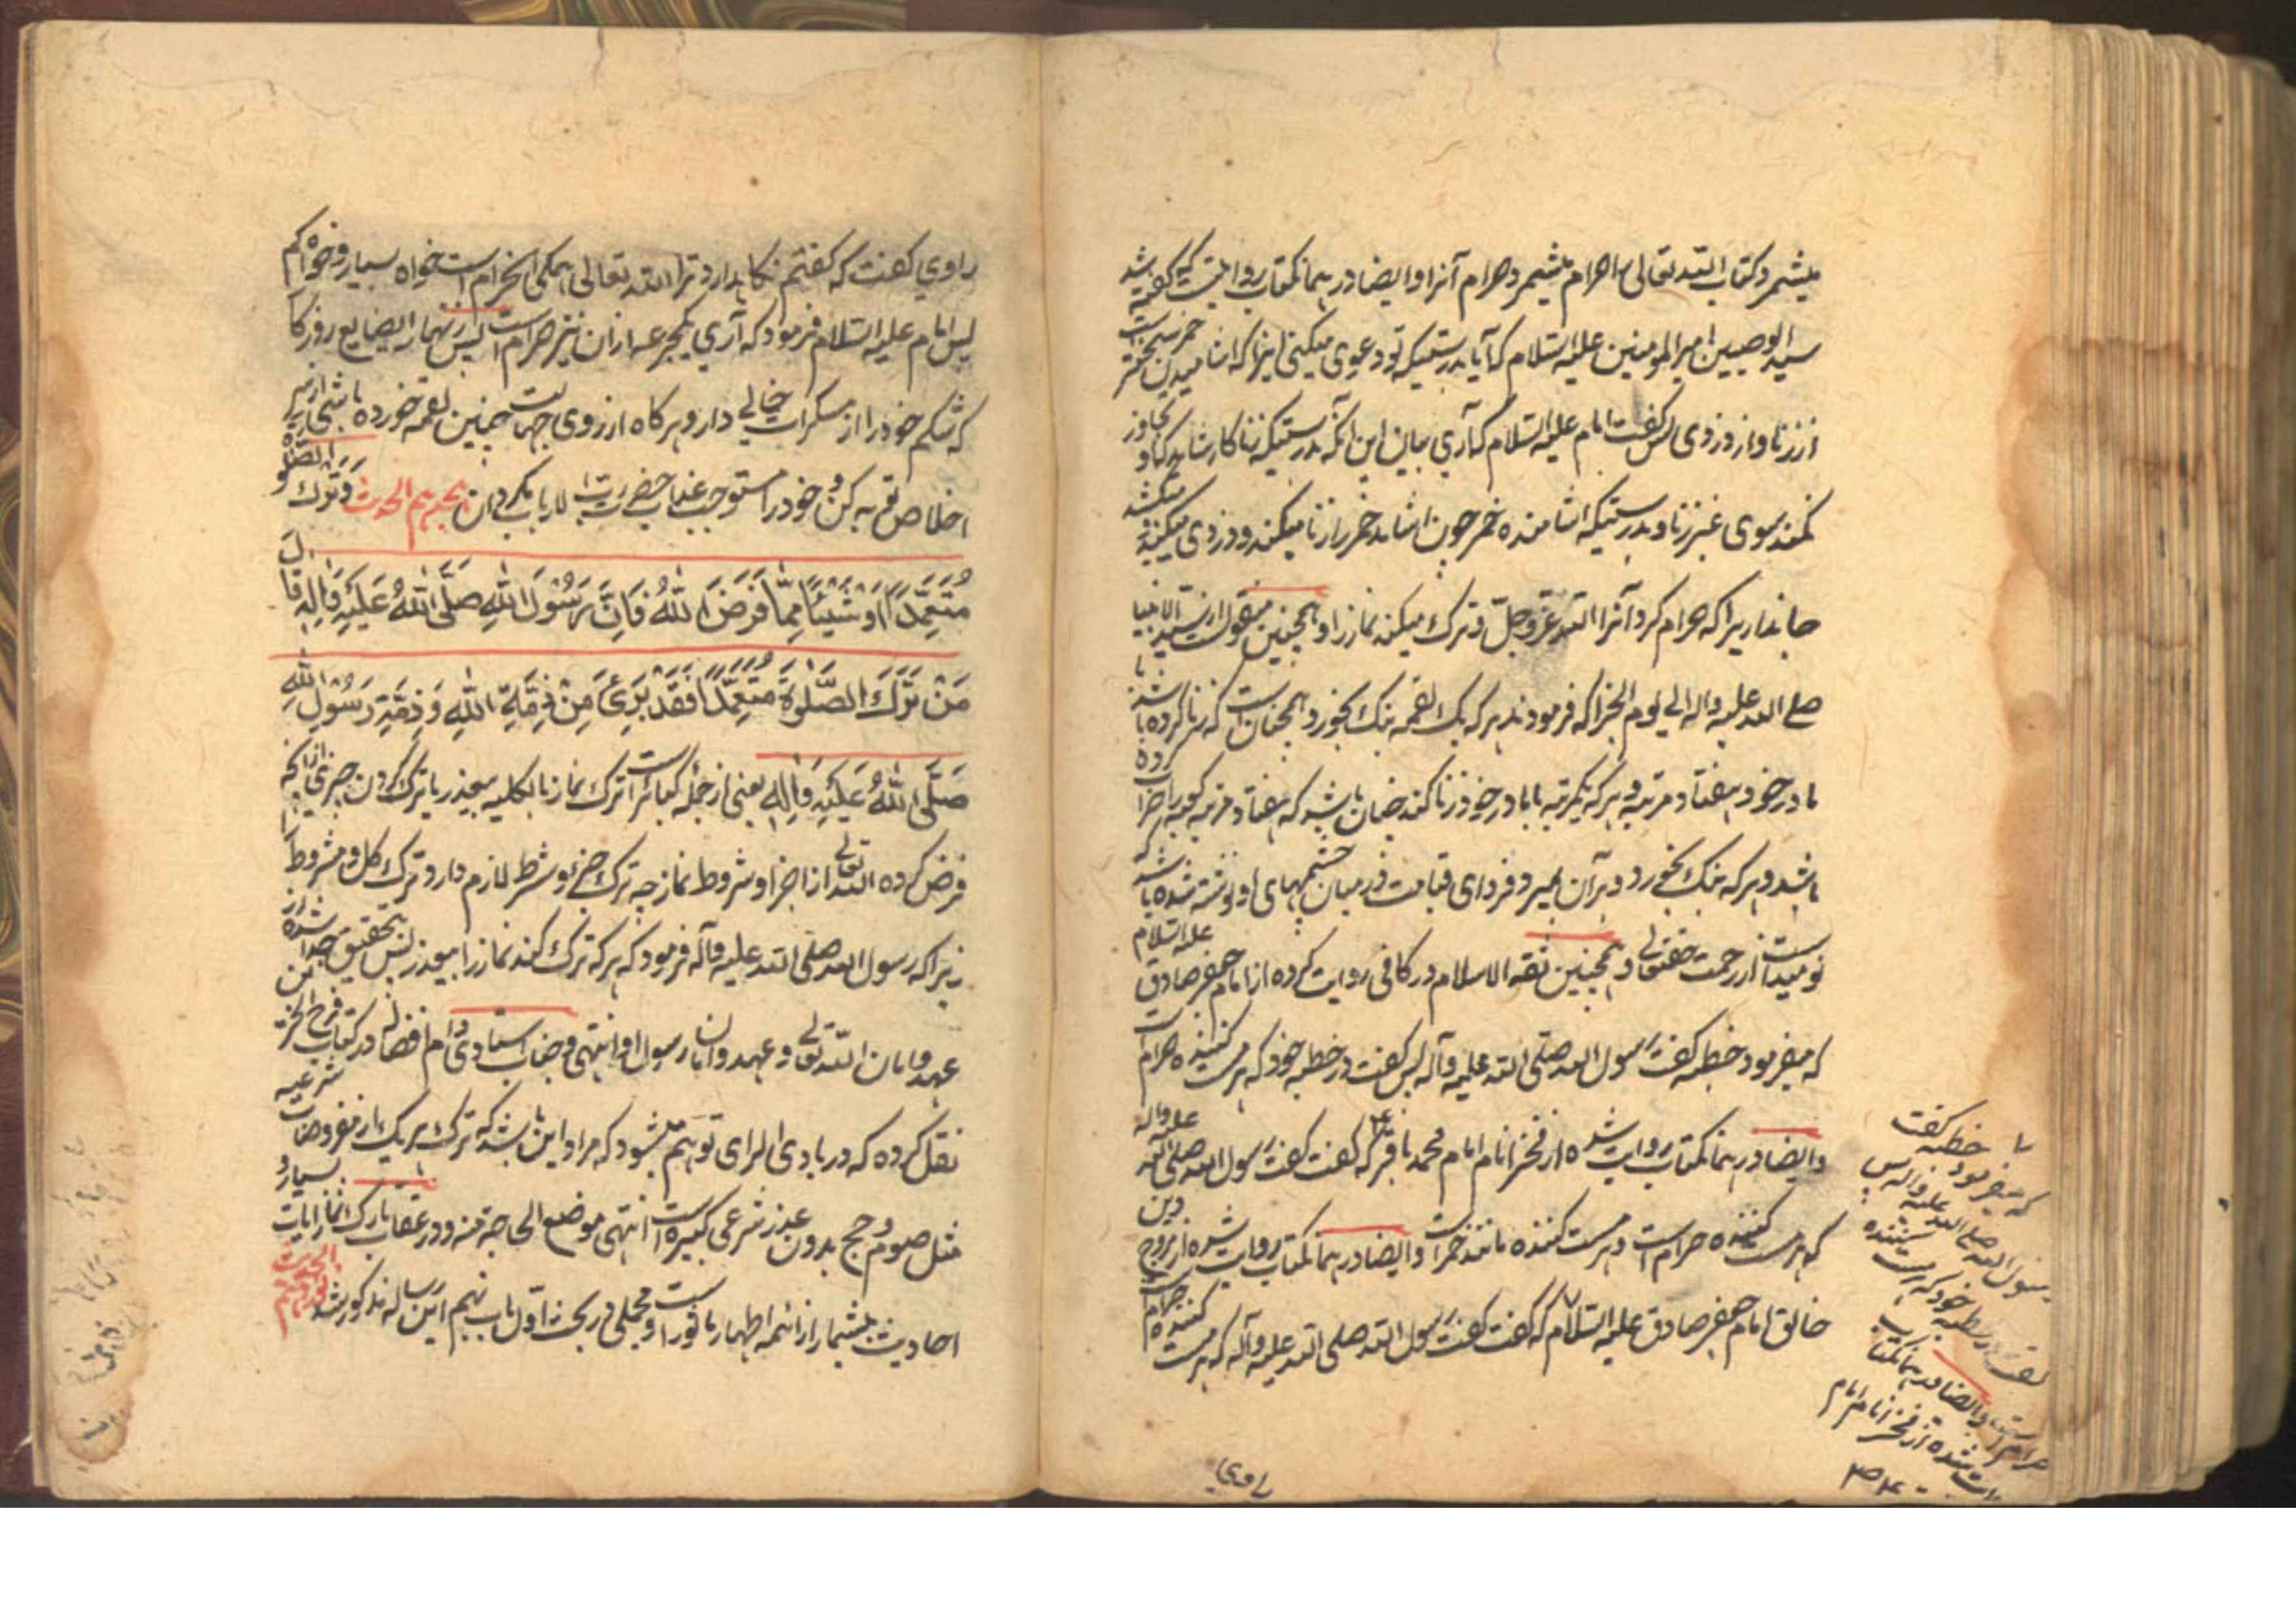 میشمرد کتاب الله تعالی حرام میشمرد حرام آنرا و ایضا در همانکتاب روایتست که گفته شد
سید الوصیین امیر المومنین علیه السلام که آیا بدرستیکه تو دعوی میکنی اینرا که اشامیدن خمر سخت‌تر است
از زنا و از دزدی پس گفت امام علیه السلام که آری بیان این آنکه بدرستیکه زناکار شاید که تجاوز
نکند بسوی غیر زنا و بدرستیکه اشامنده خمر چون اشامد خمر را زنا میکند و دزدی میکند و میکشد
جانداریرا که حرام کرد آنرا الله عز و جل و ترک میکند نماز را و همچنین منقول از سید الانبیا
صلی الله علیه و اله الی یوم الجزا که فرمودند هر که یک لقمه بنک بخورد همچنانست که زنا کرده باشد با
مادر خود هفتاد مرتبه و هر که یکمرتبه با مادر خود زنا کند چنان باشد که هفتاد مرتبه کعبه را خراب کرده
باشد و هر که بنک بخورد و بر آن بمیرد فردای قیامت در میان چشمهای او نوشته شده باشد که
نومیداست از رحمت حقتعالی و همچنین ثقه الاسلام در کافی روایت کرده از امام جعفر صادق علیه السلام
که میفرمود خطبه گفت رسول الله صلی الله علیه و آله پس گفت در خطبه خود که هر مست کننده حرام است
و ایضا در همانکتاب روایت شده از فخر انام امام محمد باقر ع که گفت گفت رسول الله صلی الله علیه واله
که هر مست کننده حرام است و هر مست کننده مانند خمرست و ایضا در همانکتاب روایت شده از مروج دین
خالق امام جعفر صادق علیه السلام که گفت گفت رسول الله صلی الله علیه و آله که هر مست کننده حرام است
راوی
خطبه گفت
که میفرمود
رسول الله صلی الله علیه و اله پس
گفت در خطبه خود که هر مست کننده
حرام است و ایضا در همانکتاب
روایت شده از فخر انام امام
راوی گفت که گفتم نکاهدارد ترا الله تعالی همکی اینحرام است خواه بسیار و خواه کم
پس امام علیه السلام فرمود که آری یکجرعه از ان نیز حرام است پس زنهار ایضایع روزکار
که شکم خود را از مسکرات خالی دار و هر کاه از روی جهالت چنین لقمه خورده باشی از سر
اخلاص توبه کن و خود را مستوجب عذاب حضرت رب الارباب مکردان هجدهم الحدیث وَتَرك الصَّلٰوة
مُتَعَمِّدًا اَوْ شَيْئًا مِمَّا فَرَضَ اللهُ فَاِنَّ رَسُوْلَ اللهِ صَلَّى اللهُ عَلَيْهِ وَاٰلِهِ قَالَ
مَنْ تَرَكَ الصَّلٰوةَ مُتَعَمِّدًا فَقَدْ بَرِئَ مِنْ ذِمَّةِ اللهِ وَذِمَّةِ رَسُوْلِ اللهِ
صَلَّى اللهُ عَلَيْهِ وَاٰلِهِ یعنی از جمله کبائرست ترک نماز بالکلیه بیعذر یا ترک کردن چیزی از انچه
فرض کرده الله تعالی از اجزا و شروط نماز چه ترک جزء و شرط لازم دارد ترک کل و مشروط را
زیرا که رسول الله صلی الله علیه و آله فرمود که هر که ترک کند نماز را بیعذر پس بتحقیق جدا شده از
عهد و امان الله تعالی و عهد و امان رسول او انتهی و جناب استادی دام افضاله در کتاب
نقل کرده که در بادی الرای توهم میشود که مراد این باشد که ترک هر یک از مفروضات شرعیه
مثل صوم و حج بدون عذر شرعی کبیره است انتهی موضع الحاجة منه و در عقاب تارک الصلوة ایات بسیار و
احادیث بیشمار از ائمه اطهار ماثور است و مجملی در بحث اول باب نهم این رساله مذکور شد نوزدهم الحدیث